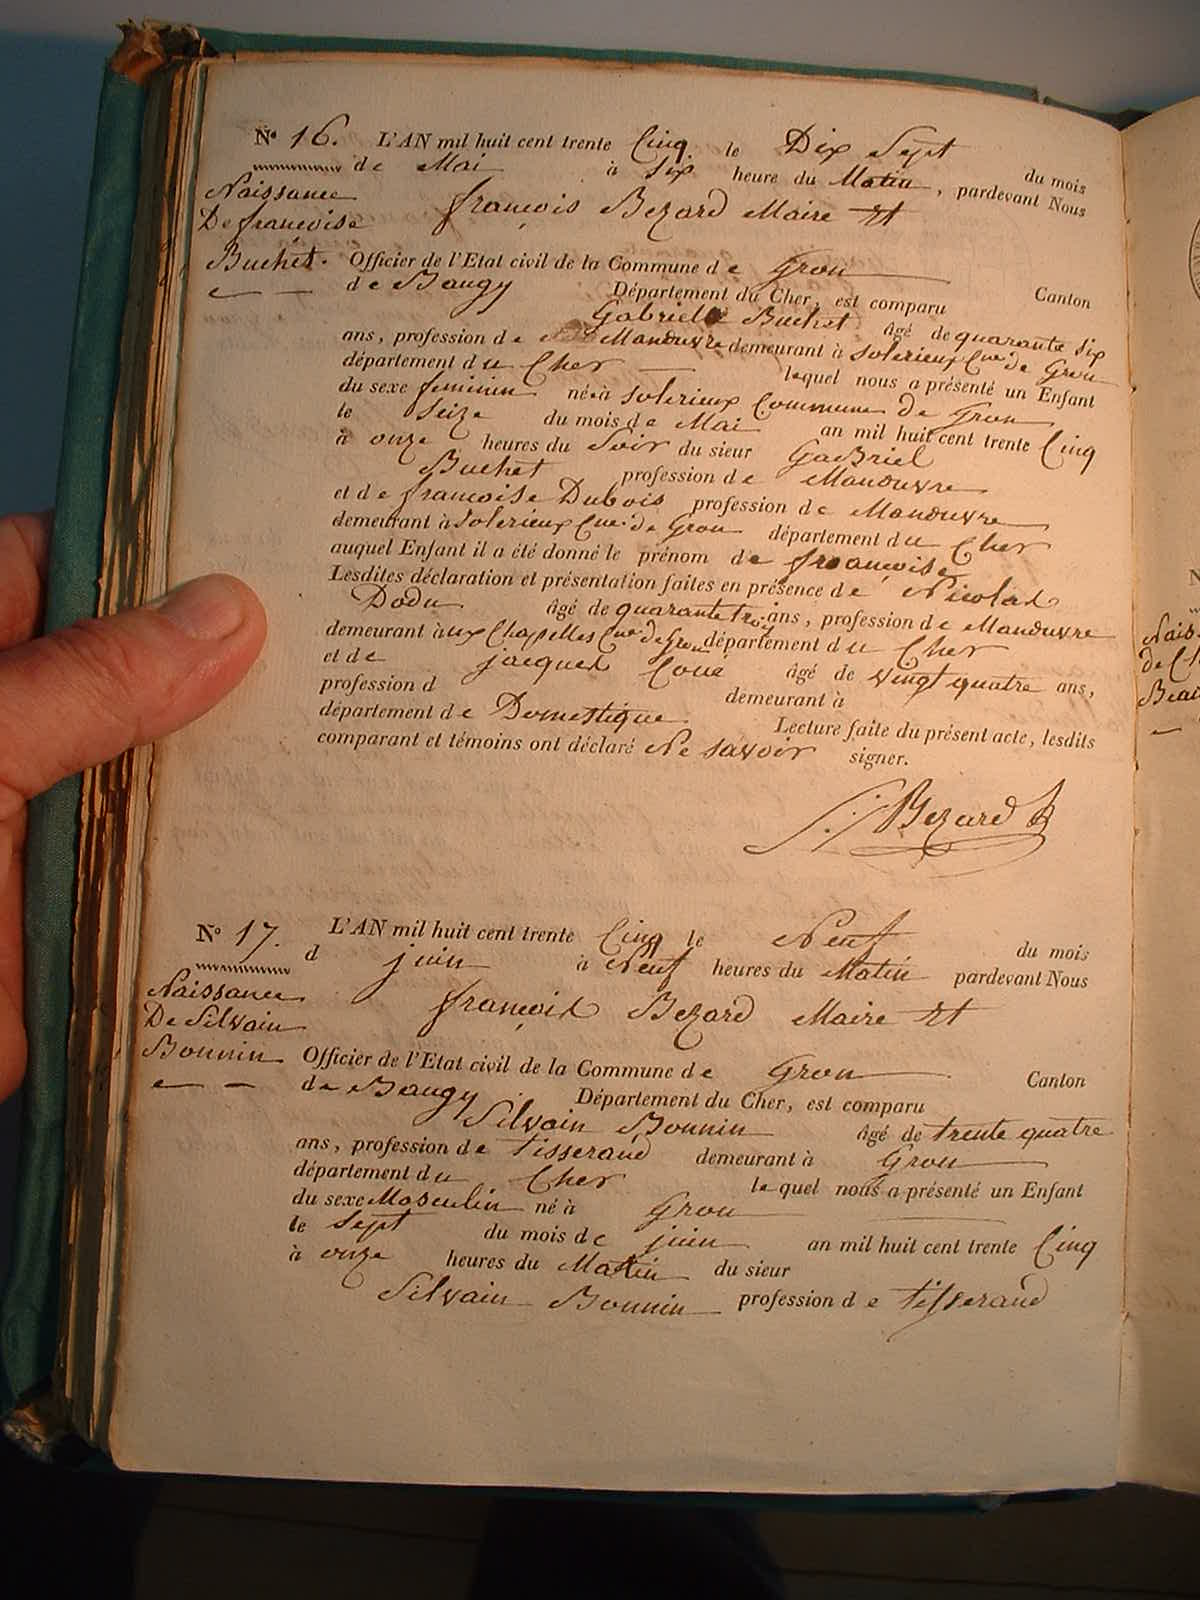 Nº 16. L'AN mil huit cent trente Cinq le Dix Sept du mois
de Mai à Six heure du Matin, pardevant Nous
Naissance
De francoise
Buchet.
françois Bezard Maire Et
Officier de l'Etat civil de la Commune de Gron Canton
de Baugy Département du Cher, est comparu
Gabriel Buchet âgé de quarante six
ans, profession de Manouvre demeurant à Solerieux Cne de Gron
département du Cher lequel nous a présenté un Enfant
du sexe feminin né à Solerieux Commune de Gron
le Seize du mois de Mai an mil huit cent trente Cinq
à onze heures du Soir du sieur GaBriel
Buchet profession de Manouvre
et de francoise Dubois profession de Manouvre
demeurant à Solerieux Cne de Gron département du Cher
auquel Enfant il a été donné le prénom de françoise
Lesdites déclaration et présentation faites en présence de Nicolas
Dodu âgé de quarante trois ans, profession de Manouvre
demeurant àux Chapelles Cne de Gron département du Cher
et de jacques Coué âgé de vingt quatre ans,
profession d demeurant à
département de Domestique Lecture faite du présent acte, lesdits
comparant et témoins ont déclaré Ne savoir signer.
Bezard
Nº 17. L'AN mil huit cent trente Cinq le Neuf du mois
d juin à Neuf heures du Matin pardevant Nous
Naissance
De Silvain
Bonnin
françois Bezard Maire Et
Officier de l'Etat civil de la Commune de Gron Canton
de Baugy Département du Cher, est comparu
Silvain Bonnin âgé de trente quatre
ans, profession de tisserand demeurant à Gron
département du Cher lequel nous a présenté un Enfant
du sexe Masculin né à Gron
le Sept du mois de juin an mil huit cent trente Cinq
à onze heures du Matin du sieur
Silvain Bonnin profession de tisserand
N
Nais
de C
Beau